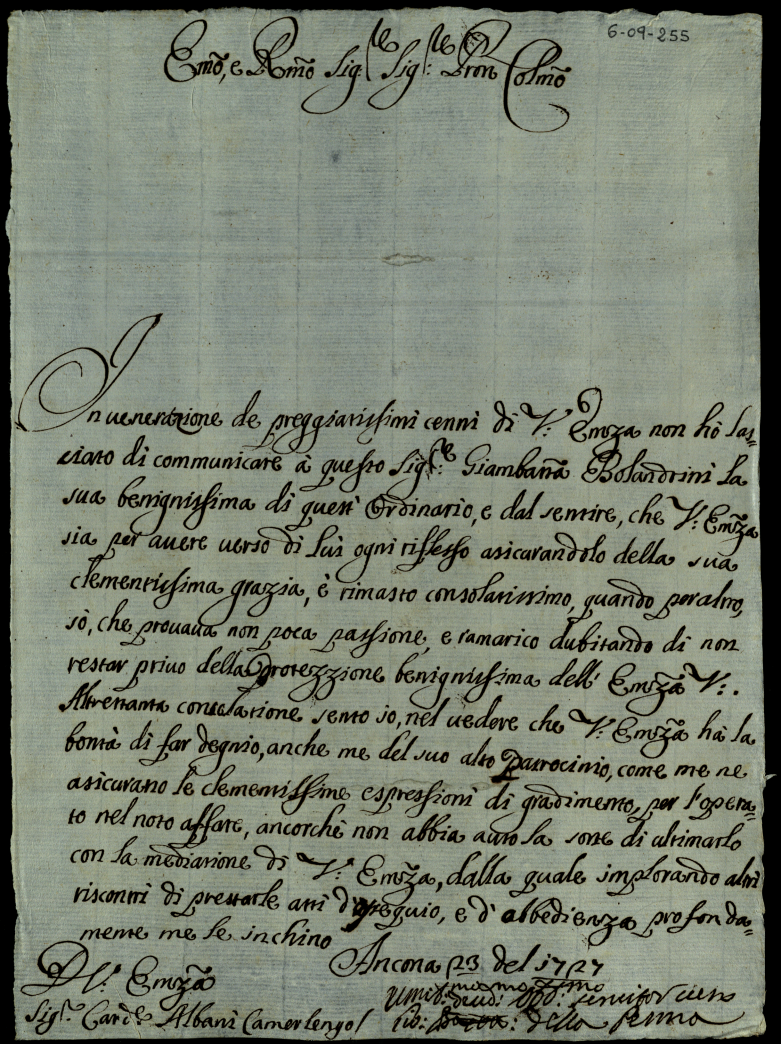 6-09-255
Emo, e Rmo Sig:re Sig:re Pron Colmo
In uenerazione de preggiatissimi cenni di V: Emza non hò las=
ciato di communicare à questo Sig:re Giambatta Bolandrini la
sua benignissima di questi Ordinario, e dal sentire, che V: Emza
sia per auere uerso di lui ogni riflesso asicurandolo della sua
clementissima grazia, è rimasto consolatissimo, quando per altro,
sò, che prouaua non poca passione, e ramarico dubitando di non
restar priuo della Protezzione benignissima dell' Emza V:.
Altrettanta consolatione sento io, nel uedere che V: Emza hà la
bontà di far degnio, anche me del suo alto Patrocinio, come me ne
asicurano le clementissime espressioni di gradimento, per l'opera=
to nel noto affare, ancorche non abbia auto la sorte di ultimarlo
con la mediatione di V: Emza, dalla quale implorando altri
riscontri di prestarle atti d'osseguio, e d'abbedienza profonda=
mente me le inchino
Ancona 23 del 1727
D V: Emza
Umil:mo deud:mo Obb:mo seruitor uero
Sig:r Card:e Albani Camerlengo/
della Penna